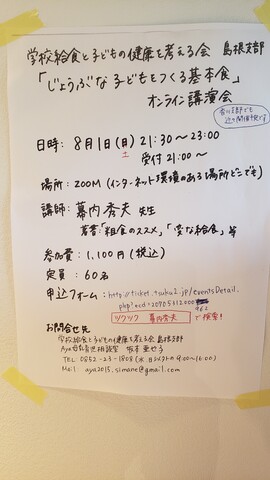 学校給食と子どもの健康を考える会 島根支部
「じょうぶな子どもをつくる基本食」
オンライン講演会
日時: 8月1日(日) 21:30〜23:00
土
受付 21:00〜
場所: ZOOM (インターネット環境のある場所どこでも)
講師: 幕内秀夫 先生
著書:「粗食のススメ」、「変な給食」等
参加費: 1,100円(税込)
定員: 60名
申込フォーム: http://ticket.tsuku2.jp/eventsDetail.
php?ecd=20905812000
962
ツクツク 幕内秀夫 で検索!
お問合せ先
学校給食と子どもの健康を考える会 島根支部
TEL 0852-23-1808 (水・日以外の9:00〜16:00)
Mail aya2015.simane@gmail.com